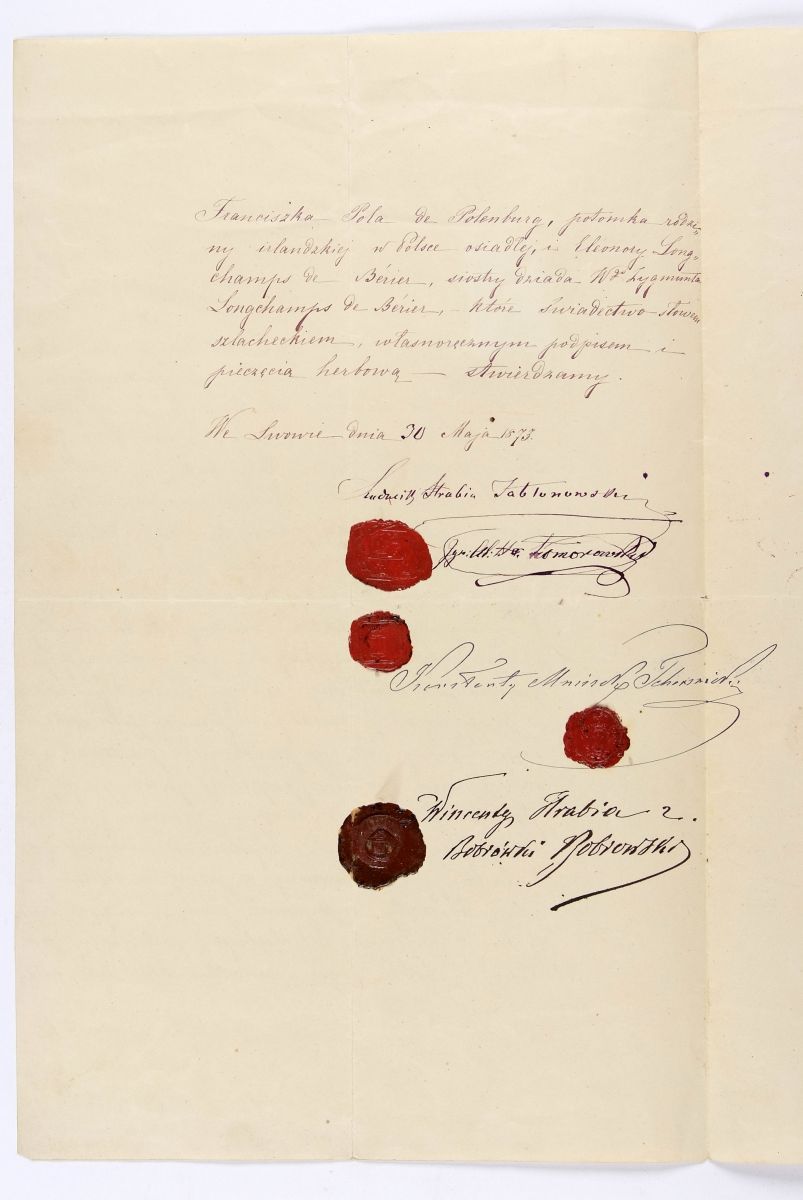 Franciszka Pola de Polenburg, potomka rodzi=
ny irlandzkiej w Polsce osiadłej, i Eleonory Long=
champs de Bérier, siostry dziada Wd° Zygmunta
Longchamps de Bérier, – które świadectwo słowem
szlacheckiem, własnoręcznym podpisem i
pieczęcią herbową — stwierdzamy.
We Lwowie dnia 30 Maja 1873.
Ludwik Hrabia Jabłonowski
Hr. Komorowski
Konstanty Mniszek Tchorznicki
Wincenty Hrabia z
Bobrówki Bobrowski